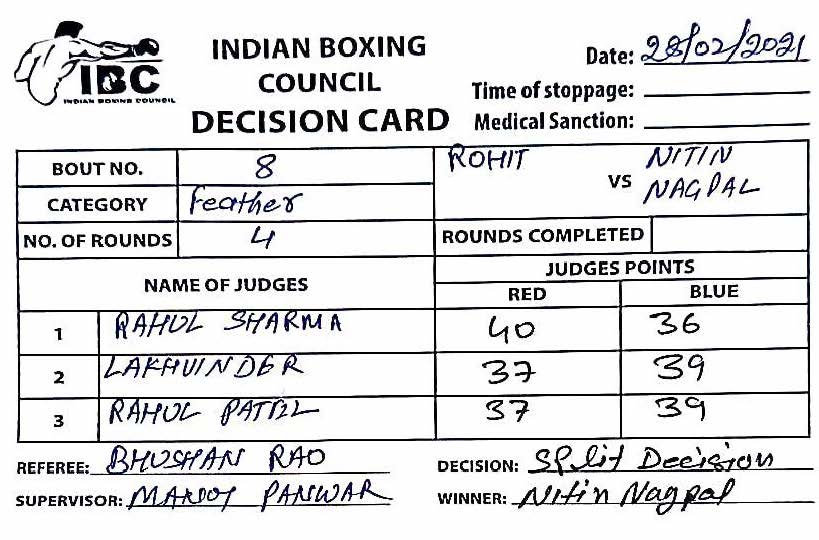 IBC
INDIAN BOXING COUNCIL
INDIAN BOXING
COUNCIL
DECISION CARD
Date: 28/02/2021
Time of stoppage:
Medical Sanction:
BOUT NO. 8
ROHIT VS NITIN
NAGPAL
CATEGORY Feather
NO. OF ROUNDS 4
ROUNDS COMPLETED
NAME OF JUDGES
JUDGES POINTS
RED BLUE
1 RAHUL SHARMA 40 36
2 LAKHVINDER 37 39
3 RAHUL PATIL 37 39
REFEREE: BHUSHAN RAO
DECISION: Split Decision
SUPERVISOR: MANOJ PANWAR
WINNER: Nitin Nagpal